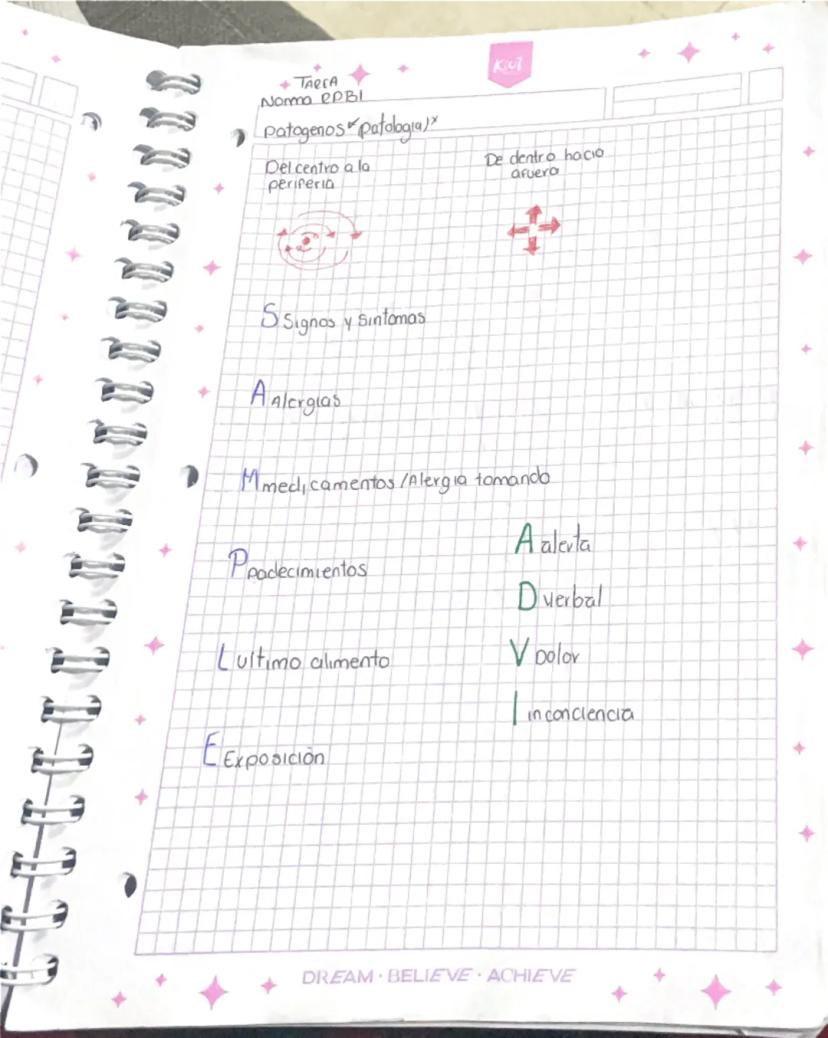 Kiut
TAREA
Norma RPBI
patogenos (patologia)
Del centro a la
periferia
De dentro hacia
afuera
S Signos y Sintomas
A Alergias
M medicamentos / Alergia tomando
P padecimientos
L ultimo alimento
E Exposición
A alerta
D verbal
V Dolor
I inconciencia
DREAM · BELIEVE · ACHIEVE